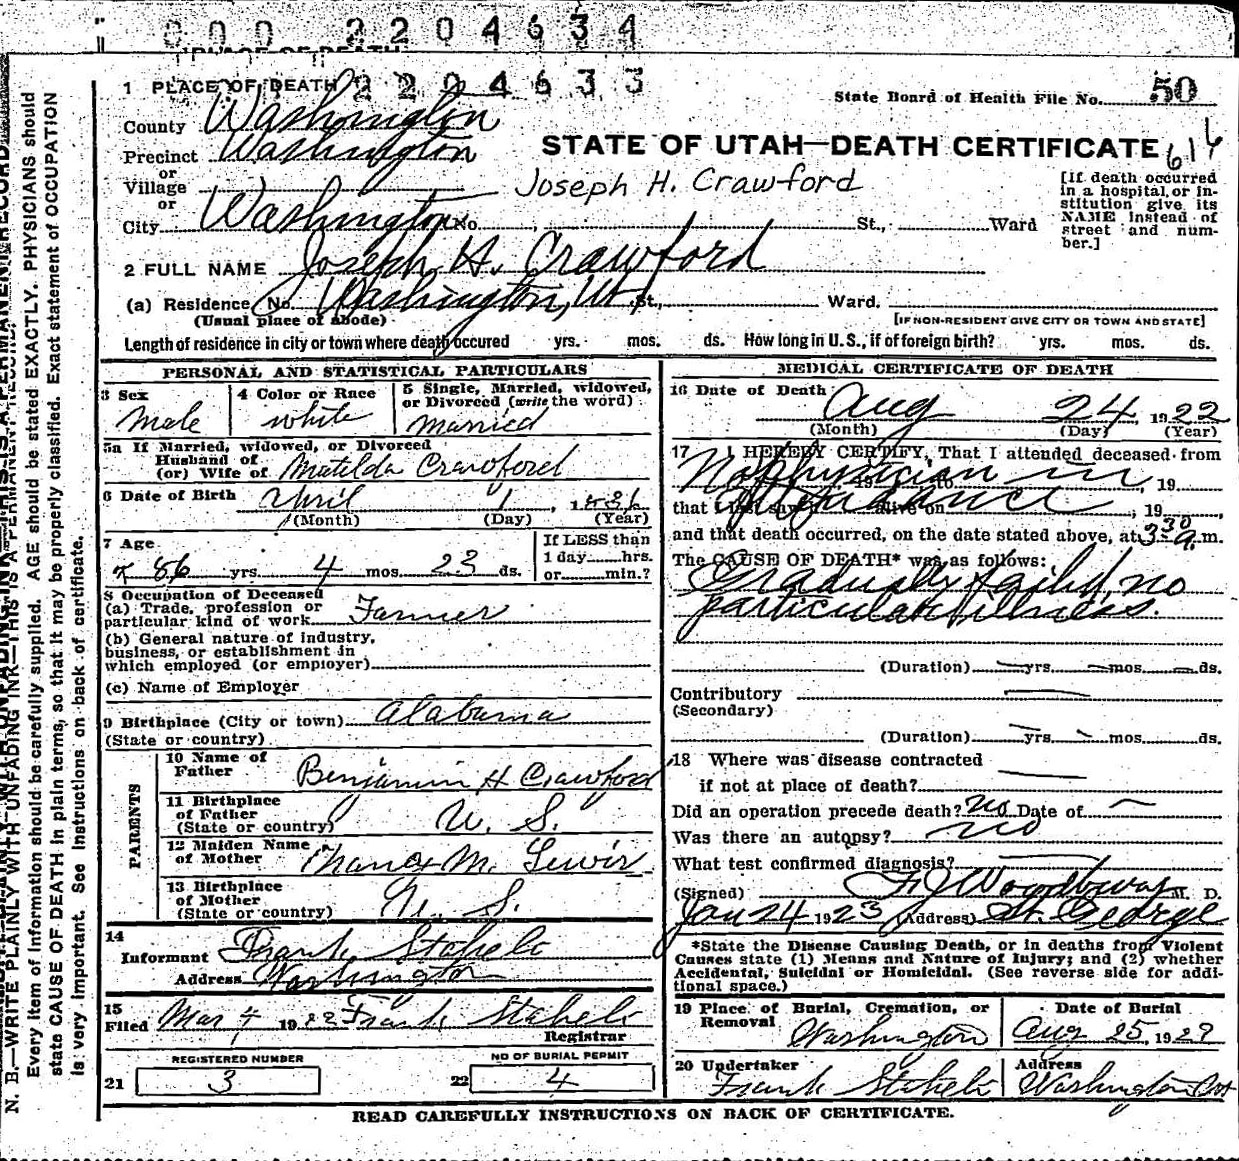 000 2204634
PLACE OF DEATH
2204633
1 PLACE OF DEATH
State Board of Health File No. 50
County Washington
STATE OF UTAH—DEATH CERTIFICATE 616
Precinct Washington
or
Village
Joseph H. Crawford
or
City Washington No. St., Ward
[If death occurred in a hospital, or institution give its NAME instead of street and number.]
2 FULL NAME Joseph H. Crawford
(a) Residence No. Washington, Ut St., Ward.
(Usual place of abode) [IF NON-RESIDENT GIVE CITY OR TOWN AND STATE]
Length of residence in city or town where death occured yrs. mos. ds. How long in U. S., if of foreign birth? yrs. mos. ds.
PERSONAL AND STATISTICAL PARTICULARS
3 Sex Male
4 Color or Race white
5 Single, Married, widowed, or Divorced (write the word) Married
5a If Married, widowed, or Divorced
Husband of
(or) Wife of Matilda Crawford
6 Date of Birth April 1, 1836
(Month) (Day) (Year)
7 Age 86 yrs. 4 mos. 23 ds.
If LESS than
1 day hrs.
or min.?
8 Occupation of Deceased
(a) Trade, profession or
particular kind of work Farmer
(b) General nature of industry,
business, or establishment in
which employed (or employer)
(c) Name of Employer
9 Birthplace (City or town) Alabama
(State or country)
PARENTS
10 Name of
Father Benjamin H Crawford
11 Birthplace
of Father
(State or country) U. S.
12 Maiden Name
of Mother M. Lewis
13 Birthplace
of Mother
(State or country) U. S.
14
Informant Frank Staheli
Address Washington
15
Filed Mar 4 1922 Frank Staheli
Registrar
REGISTERED NUMBER
21 3
NO OF BURIAL PERMIT
22 4
MEDICAL CERTIFICATE OF DEATH
16 Date of Death Aug 24, 1922
(Month) (Day) (Year)
17 I HEREBY CERTIFY, That I attended deceased from
No physician in, 19
attendance
that I last saw alive on, 19
and that death occurred, on the date stated above, at 3 30 a. m.
The CAUSE OF DEATH* was as follows:
Gradually faild, no
particular illness.
(Duration) yrs. mos. ds.
Contributory
(Secondary)
(Duration) yrs. mos. ds.
18 Where was disease contracted
if not at place of death?
Did an operation precede death? no Date of
Was there an autopsy? no
What test confirmed diagnosis?
(Signed) F. J. Woodbury M. D.
Jan 24 1923 (Address) St. George
*State the Disease Causing Death, or in deaths from Violent
Causes state (1) Means and Nature of Injury; and (2) whether
Accidental, Suicidal or Homicidal. (See reverse side for addi-
tional space.)
19 Place of Burial, Cremation, or
Removal Washington
Date of Burial
Aug 25, 1922
20 Undertaker
Frank Staheli
Address
Washington
READ CAREFULLY INSTRUCTIONS ON BACK OF CERTIFICATE.
N. B.—WRITE PLAINLY WITH UNFADING INK—THIS IS A PERMANENT RECORD
Every item of information should be carefully supplied. AGE should be stated EXACTLY. PHYSICIANS should
state CAUSE OF DEATH in plain terms, so that it may be properly classified. Exact statement of OCCUPATION
is very important. See instructions on back of certificate.